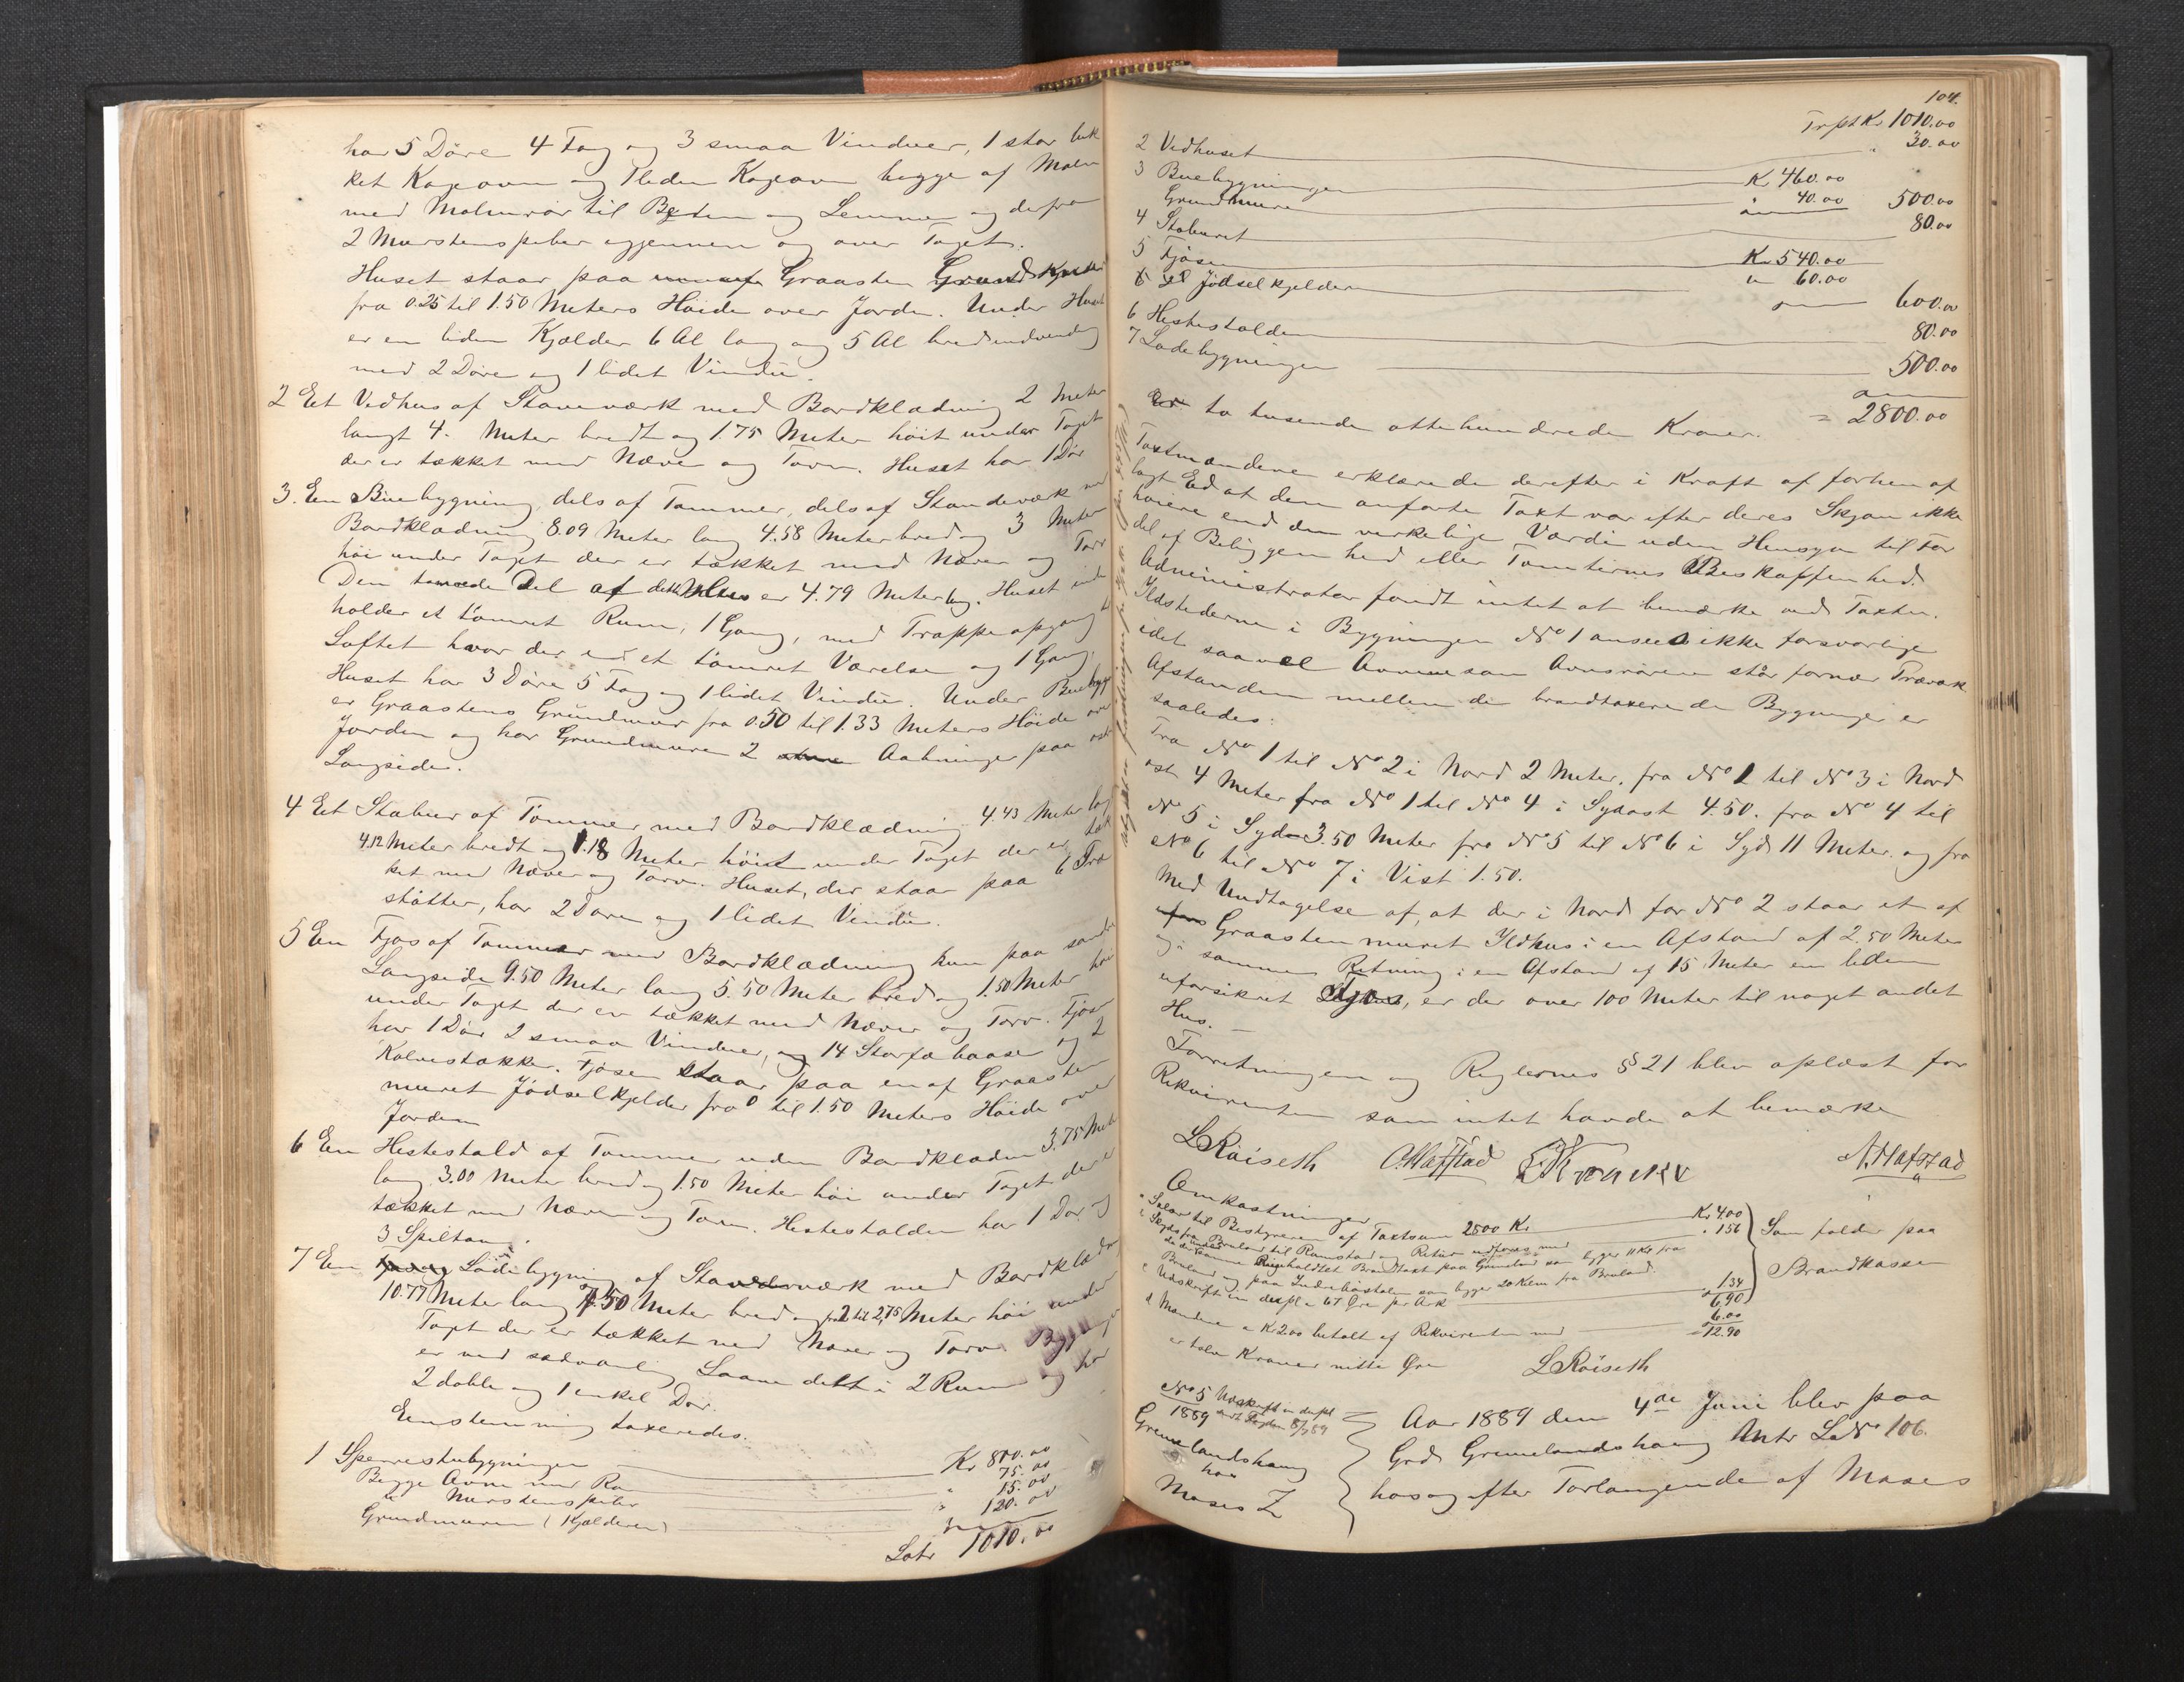 har 5 Döre 4 Fag og 3 smaa Vinduer, 1 stor luk
ket Kogeovn og 1 liden Kogeovn begge af Malm
med Malmrör til
2 Murstenspiber igjennem og over Taget.
Huset staar paa Graasten Grund
fra 0.25 til 1.50 Meters Höide over Jorden. Under Huset
er en liden Kjælder 6 Al lang og 5 Al bred indvendig
med 2 Döre og 1 lidet Vindu.
2 Eet Vedhus af Staveværk med Bordklædning 2 Meter
langt 4. Meter bredt og 1.75 Meter höit under Taget
der er tækket med Næver og Torv. Huset har 1 Dör
3. En Buebygning, dels af Tömmer, dels af Standeværk
Bordklædning 8.09 Meter lang 4.58 Meter bred og 3 Meter
höi under Taget der er tækket med Næver og Torv
Den tømrede Del af dette Hus er 4.79 Meter lang. Huset inde
holder et tömret Rum, 1 Gang, med Trappeopgang til
Loftet hvor der er et tömret Værelse og 1 Gang.
Huset har 3 Döre 5 Fag og 1 lidet Vindu. Under
er Graastens Grundmur fra 0.50 til 1.33 Meters Höide over
Jorden og har Grundmuren 2 Aabninger paa
Langsiden.
4 Eet Stabur af Tömmer med Bordklædning 4.43 Meter langt
4.12 Meter bredt og 1.18 Meter höit under Taget der er tæk
ket med Næver og Torv. Huset, der staar paa 6 Træ
stötter, har 2 Döre og 1 lidet Vindu.
5 Een Fjös af Tömmer med Bordklædning kun paa söndre
Langside 9.50 Meter lang 5.50 Meter bred og 1.50 Meter höi
under Taget der er tækket med Næver og Torv. Fjösen
har 1 Dör 2 smaa Vinduer, og 14 Storfæbaase og 2
Kalvestakke. Fjösen staar paa en af Graasten
muret Jödselkjelder fra 0 til 1.50 Meters Höide over
Jorden
6 Een Hestestald af Tömmer uden Bordklædn 3.75 Meter
lang 3.00 Meter bred og 1.50 Meter höi under Taget der er
tækket med Næver og Torv. Hestestalden har 1 Dör og
3 Spiltan.
7 Een Ladebygning af Standerværk med Bordklædn
10.77 Meter lang 4.50 Meter bred og fra 2 til 2,75 Meter höi under
Taget der er tækket med Næver og Torv. Bygningen
er med sædvanlig Laave delt i 2 Rum og har
2 doble og 1 enkel Dör.
Eenstemmig taxeredes.
1 Sperrestubygningen Kr 800.00
Begge Ovne med Rör " 75.00
2 Murstenspiber " 15.00
Grundmuren (Kjælderen) " 120.00
Latr 1010.00
104.
Trpt Kr 1010.00
2 Vedhuset " 30.00
3 Buebygningen Kr 460.00
Grundmure " 40.00 500.00
4 Staburet 80.00
5 Fjösen Kr 540.00
Jödselkjelderen " 60.00
600.00
6 Hestestalden 80.00
7 Ladebygningen 500.00
= 2800.00
to tusende ottehundrede Kroner.
Taxtmændene erklærede derefter i Kraft af forhen af
lagt Ed at den anförte Taxt var efter deres Skjøn ikke
höiere end den verkelige Værdi uden Hensyn til For
del af Beliggenhed eller Tomternes Beskaffenhed.
Administrator fandt intet at bemærke ved Taxten.
Ildstederne i Bygningen No 1 ansees ikke forsvarlige
idet saavel Ovnene som Ovnsrörene står fornær Træværk
Afstanden mellem de brandtaxerede Bygninger er
saaledes:
Fra No 1 til No 2 i Nord 2 Meter. fra No 1 til No 3 i Nord
ost 4 Meter fra No 1 til No 4 i Sydost 4.50. fra No 4 til
No 5 i Syd 3.50 Meter fra No 5 til No 6 i Syd 11 Meter. og fra
No 6 til No 7 i Vest 1.50.
Med Undtagelse af, at der i Nord for No 2 staar et af
Graasten muret Ildhus i en Afstand af 2.50 Meter
og i samme Retning i en Afstand af 15 Meter en liden
uforsikret, er der over 100 Meter til noget andet
Hus.
Forretningen og Reglernes § 21 blev oplæst for
Rekvirenten som intet havde at bemærke
L Röiseth O. Hafstad N. Hafstad
Omkostninger
a Salær til Bestyreren af Taxtsum 2800 Kr Kr 4.00
" 1.56
c Udskrift in dupl a 67 Öre per Ark 1.34
6.90
Som falder paa
Brandkassen
d Mændene a Kr 2.00 betalt af Rekvirenten med 6.00
= 12.90
er tolv Kroner nitti Öre
L Röiseth
No 5 Udskrift in dupl
1889
Grimelandshaug
hos
Moses Z
Aar 1889 den 4de Juni blev paa
Grd. Grimelandshaug Mntr L No 106.
hos og efter Forlangende af Moses